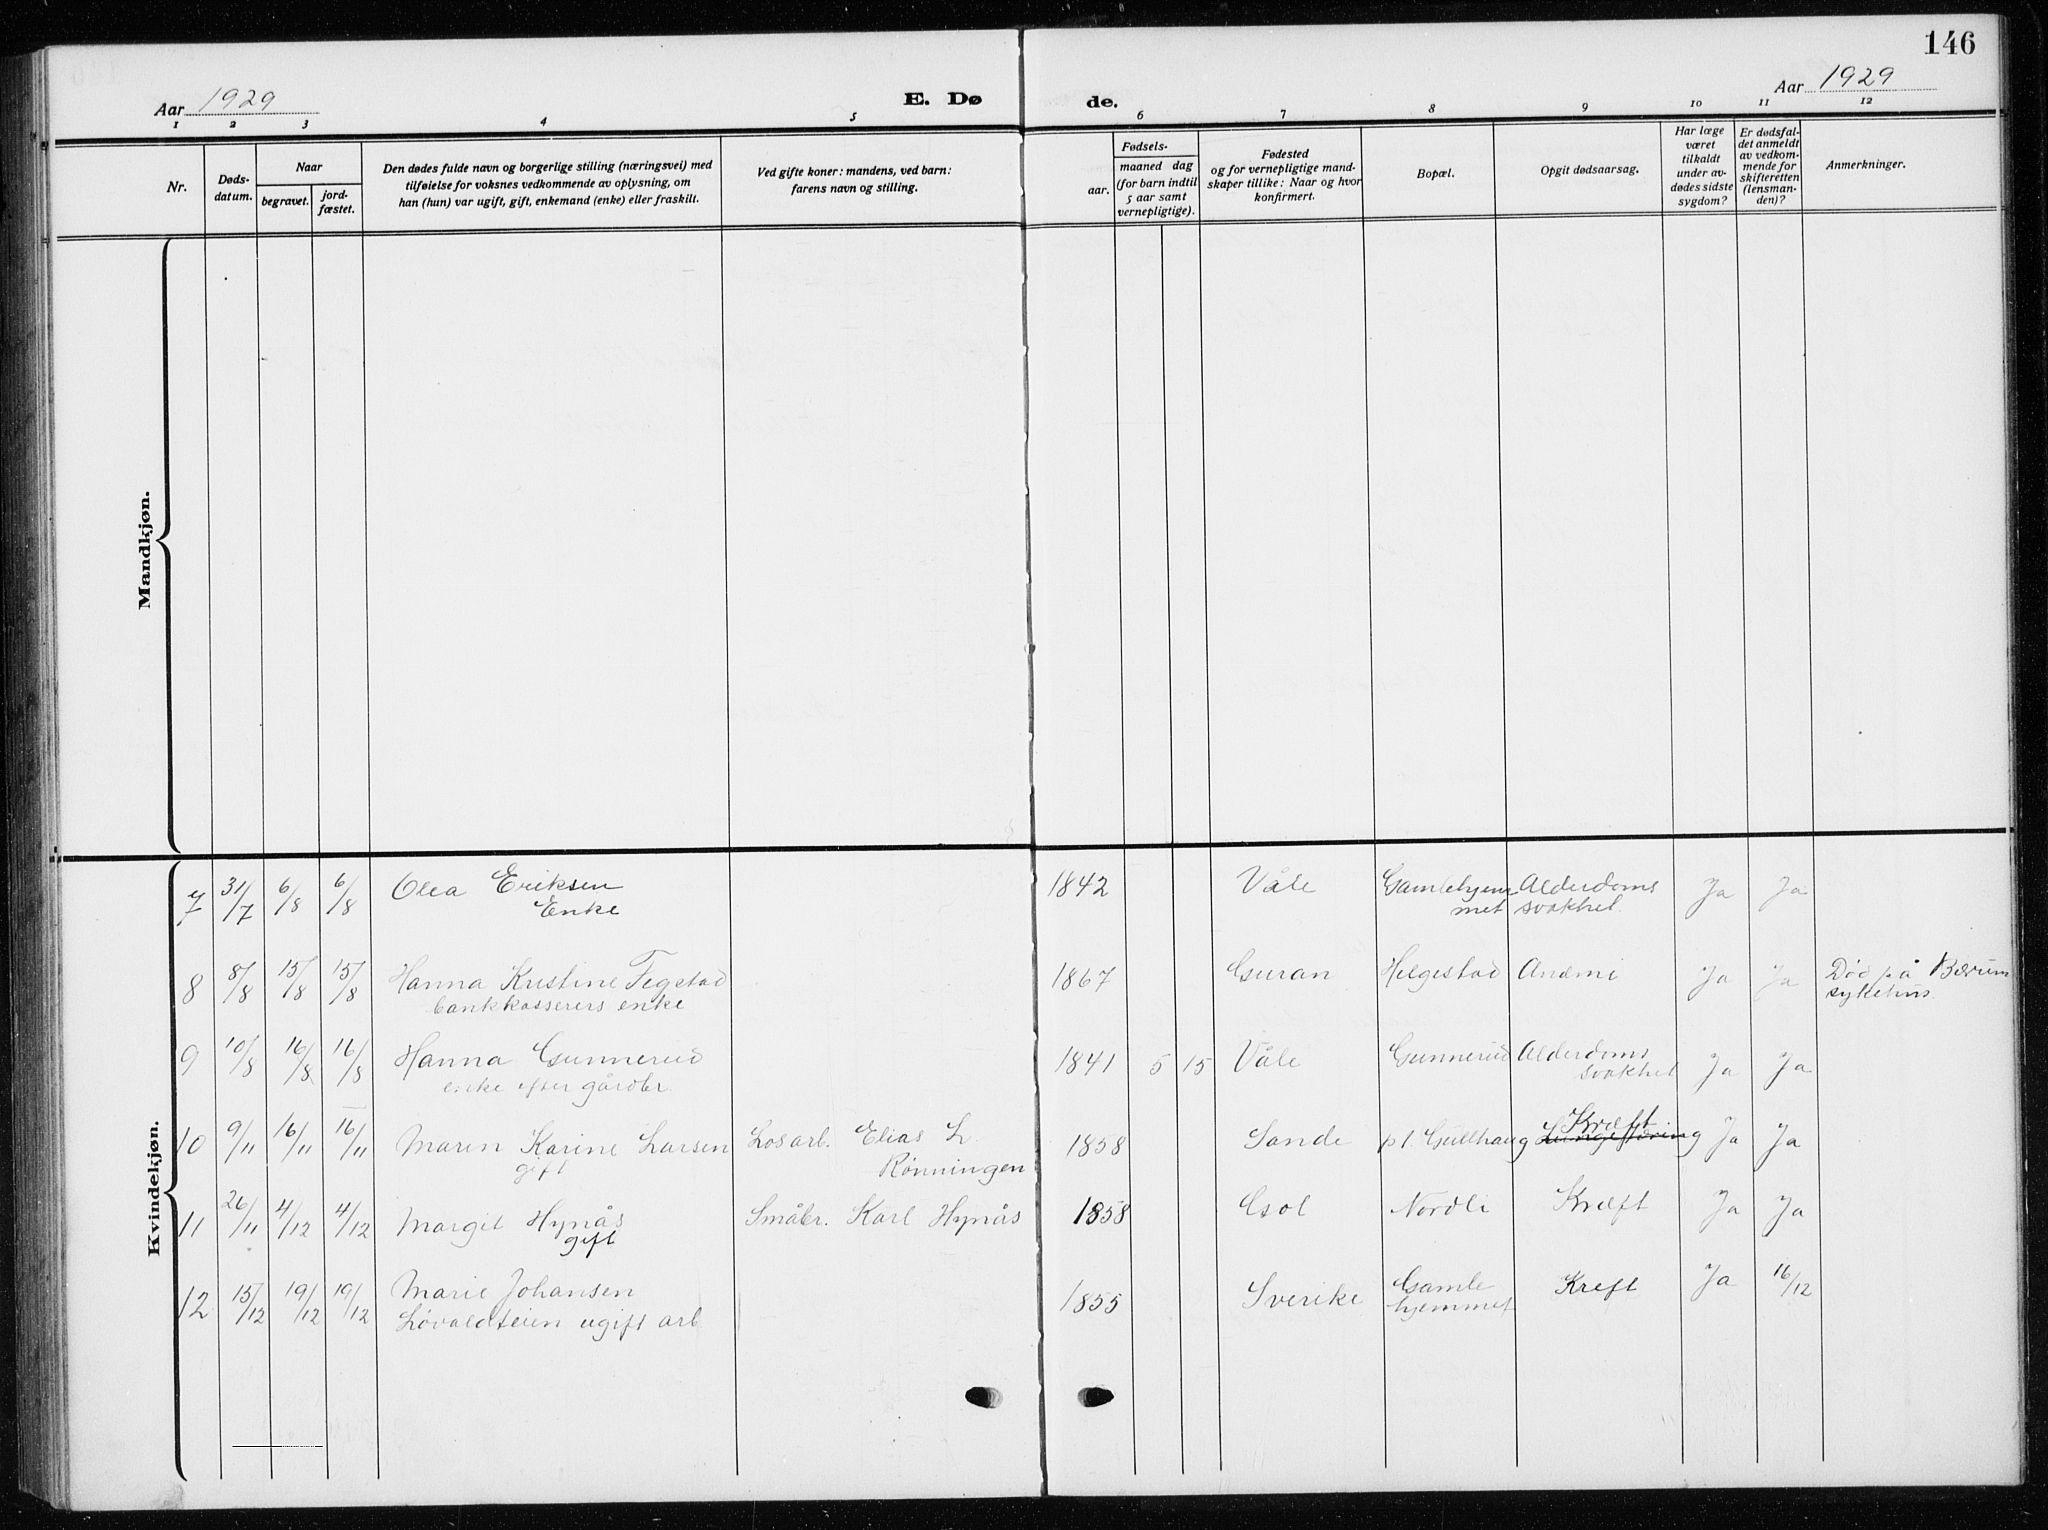 146
Aar 1929
E. Dø
de.
Aar 1929
1 2 3 4 5 6 7 8 9 10 11 12
Nr.
Døds-
datum.
Naar
begravet.
jord-
fæstet.
Den dødes fulde navn og borgerlige stilling (næringsvei) med
tilføielse for voksnes vedkommende av oplysning, om
han (hun) var ugift, gift, enkemand (enke) eller fraskilt.
Ved gifte koner: mandens, ved barn:
farens navn og stilling.
Fødsels-
aar.
maaned dag
(for barn indtil
5 aar samt
vernepligtige).
Fødested
og for vernepligtige mand-
skaper tillike: Naar og hvor
konfirmert.
Bopæl.
Opgit dødsaarsag.
Har læge
været
tilkaldt
under av-
dødes sidste
sygdom?
Er dødsfal-
det anmeldt
av vedkom-
mende for
skifteretten
(lensman-
den)?
Anmerkninger.
Mandkjøn.
Kvindekjøn.
7 31/7 6/8 6/8 Olea Eriksen 1842 Våle Gamlehjem Alderdoms Ja Ja
Enke met svakhet.
8 8/8 15/8 15/8 Hanna Kristine Fegstad 1867 Guran Helgestad Anæmi Ja Ja Død på Bærum
bankkasserers enke sykehus.
9 10/8 16/8 16/8 Hanna Gunnerud 1841 5 15 Våle Gunnerud Alderdoms Ja Ja
enke efter gårdbr. svakhet
Kræft
10 9/11 16/11 16/11 Maren Karine Larsen Losarb. Elias L. 1858 Sande p.t. Gullhaug Ja Ja
gift Rønningen
11 26/11 4/12 4/12 Margit Hynås Småbr. Karl Hynås 1858 Gol Nordli Kræft Ja Ja
gift
12 15/12 19/12 19/12 Marie Johansen 1855 Sverike Gamle Kreft Ja 16/12
Løvaldteien ugift arb hjemmet